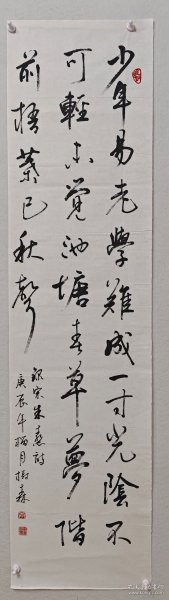 少年易老學難成一寸光陰不
可輕未覺池塘春草夢階
前梧葉已秋聲
錄宋朱熹詩
庚辰年酒月樹森